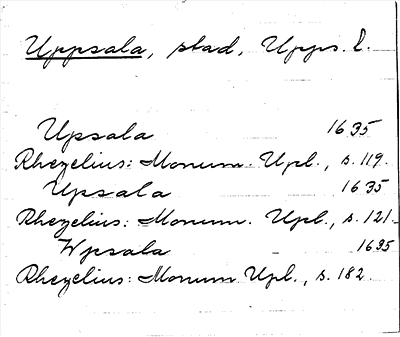 Uppsala, stad, Upps. l.
Upsala 1635
Rhezelius: Monum. Upl., s. 119.
Upsala 1635
Rhezelius: Monum. Upl., s. 121.
Wpsala 1635
Rhezelius: Monum Upl., s. 182